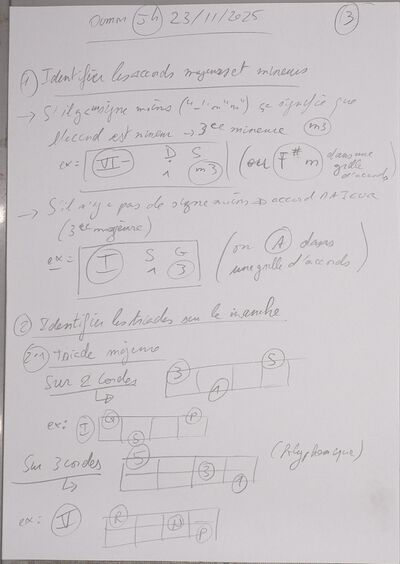 Oumou Jh 23/11/2025 3
1 Identifier les accords majeurs et mineurs
→ S'il y a un signe moins ("-" ou "m") ça signifie que
l'accord est mineur → 3ce mineure m3
ex = VI- D S 1 m3 (ou F#m dans une grille d'accords)
→ S'il n'y a pas de signe moins → accord MAJEUR
(3ce majeure)
ex = I S G 1 3 (ou A dans une grille d'accords)
2 Identifier les triades sur le manche
2-1 Triade majeure
Sur 2 cordes 3 1 5
ex: I G S P
Sur 3 cordes 5 3 1 (Polyphonique)
ex: V R N P